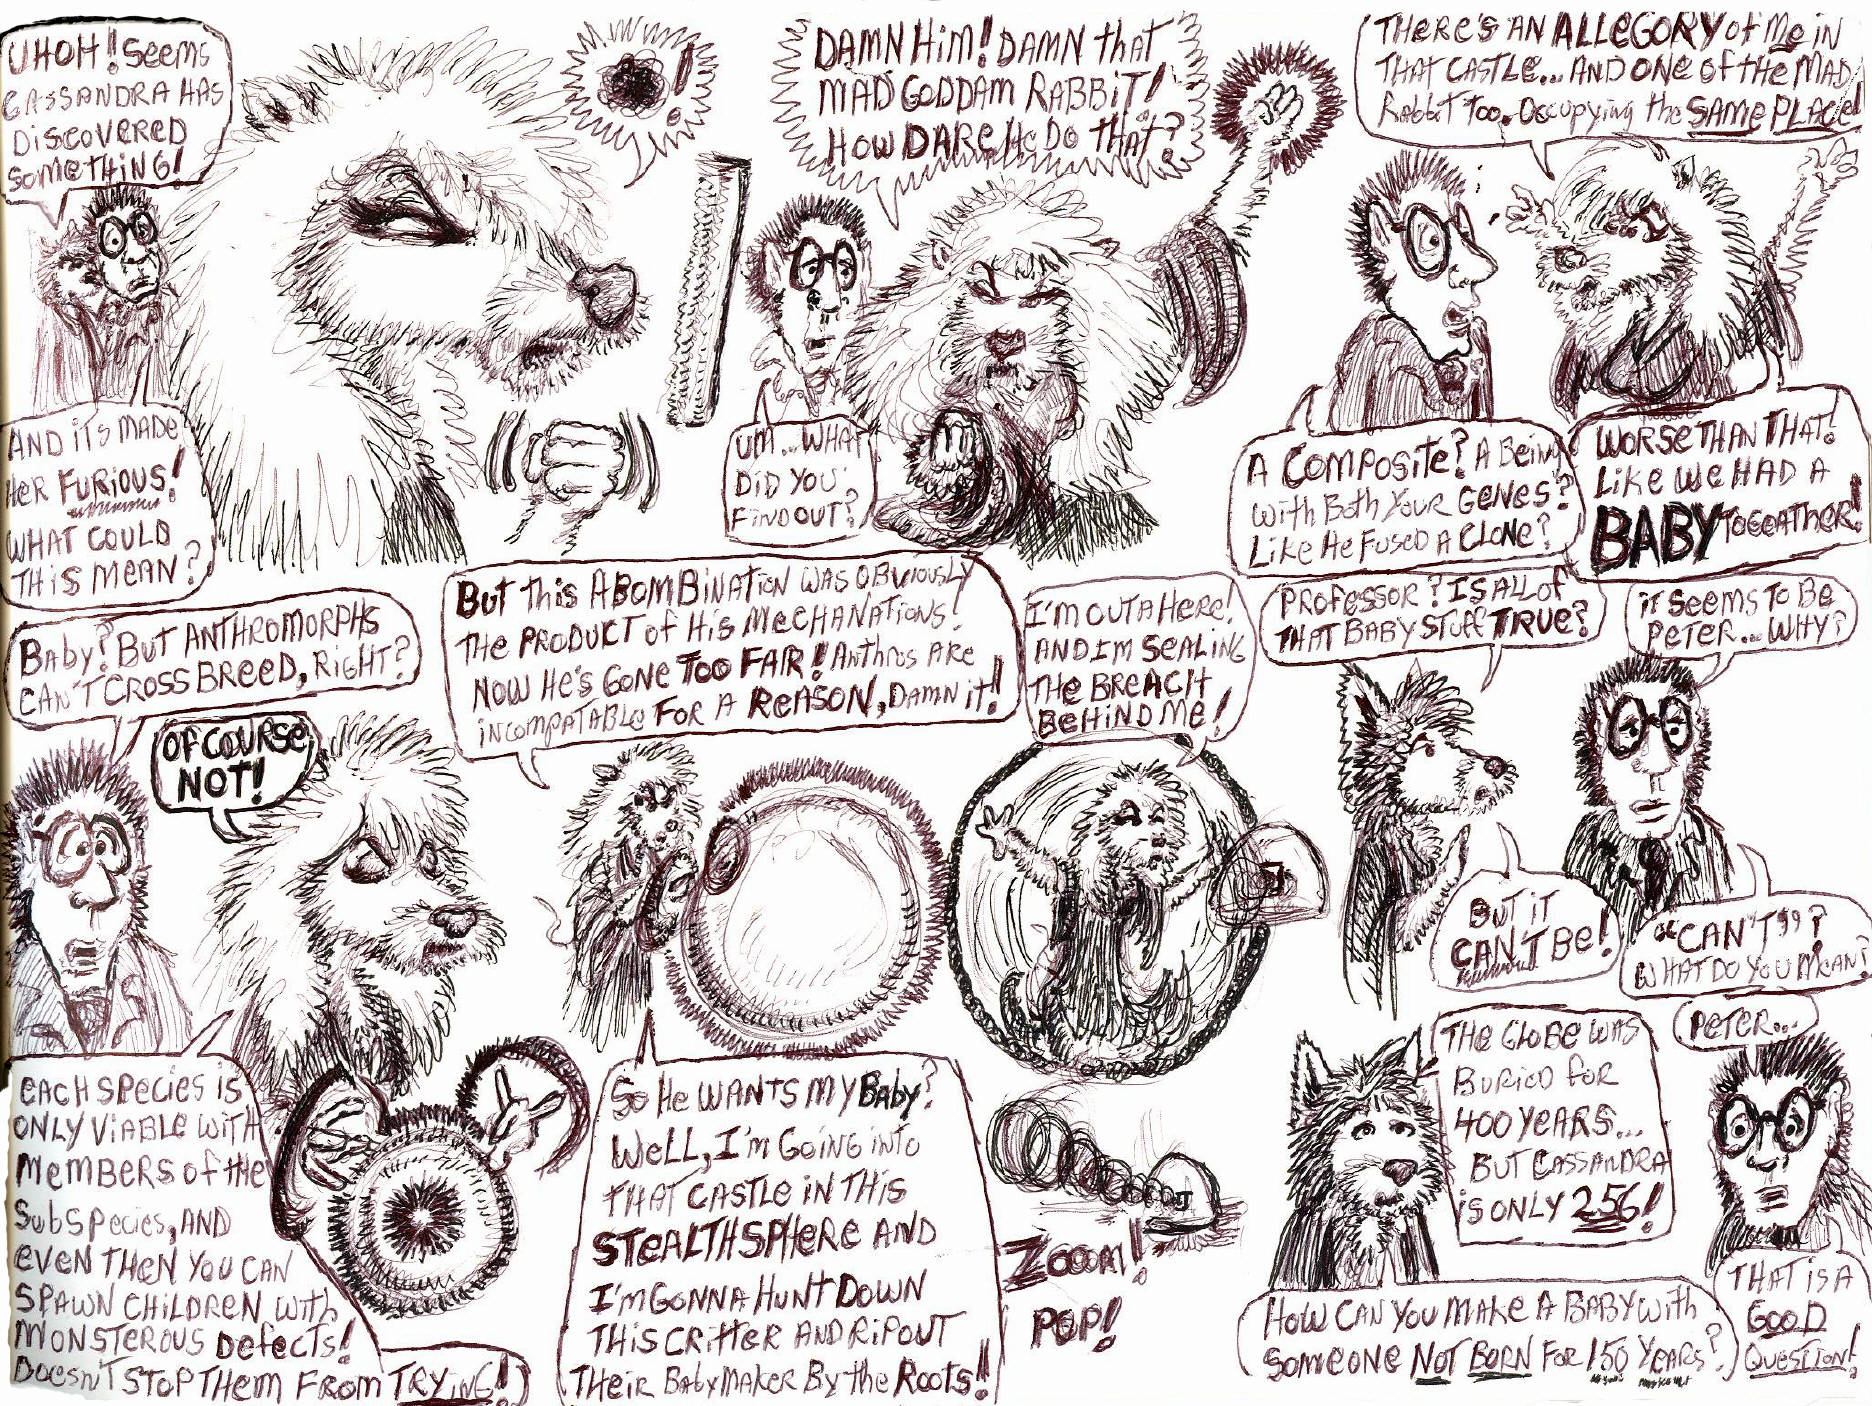 UHOH! Seems
CASSANDRA HAS
DISCOVERED
SOMETHING!
AND ITS MADE
HER FURIOUS!
WHAT COULD
THIS MEAN?
!
DAMN HIM! DAMN that
MAD GODDAM RABBIT!
HOW DARE He DO THAT?
UM...WHAT
DID YOU
FIND OUT?
THERE'S AN ALLEGORY of Me IN
THAT CASTLE... AND ONE OF THE MAD
Rabbit too. Occupying the SAME PLACE!
A COMPOSITE? A Being
With Both Your GENES?
Like He FUSED A CLONE?
WORSE THAN THAT!
Like We HAD A
BABY TOGEATHER!
BABY? BUT ANTHROMORPHS
CAN'T CROSS BREED, RIGHT?
OF COURSE
NOT!
EACH SPECIES IS
ONLY VIABLE WITH
MEMBERS of the
Subspecies, AND
EVEN THEN YOU CAN
SPAWN CHILDREN WITH
MONSTEROUS Defects!
DOESN'T STOP THEM FROM TRYING!
BUT this ABOMBINATION WAS OBVIOUSLY
the PRODUKT of His MECHANATIONS!
NOW He'S GONE TOO FAIR! Anthros ARE
INCOMPATABLE FOR A REASON, DAMN it!!
So He WANTS MY BABY?
Well, I'm Going into
THAT CASTLE IN THIS
STEALTHSPHERE AND
I'M GONNA HUNT DOWN
THIS CRITTER AND RIP OUT
THEIR BABYMAKER By the ROOTS!!
I'M OUTA HERE!
AND I'M SEALING
THE BREACH
BEHIND ME!
ZOOOM!
POP!
PROFESSOR? IS ALL OF
THAT BABY STUFF TRUE?
IT SEEMS TO BE
PETER... WHY?
BUT IT
CAN'T BE!
"CAN'T"?
WHAT DO YOU MEAN?
THE GLOBE WAS
BURIED FOR
400 YEARS...
BUT CASSANDRA
IS ONLY 256!
HOW CAN YOU MAKE A BABY WITH
SOMEONE NOT BORN FOR 150 YEARS?
PETER...
THAT IS A
GOOD
QUESTION!